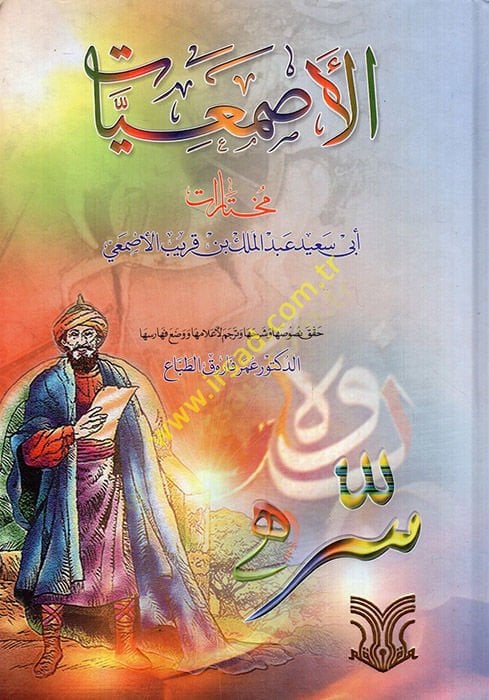 الأصمعيَّات
مُختارات
أبي سعيد عبد الملك بن قريب الأصمعي
حقق نصوصها وشرحها وترجم لأعلامها ووضع فهارسها
الدكتور عمر فاروق الطباع
www.irsad.com.tr